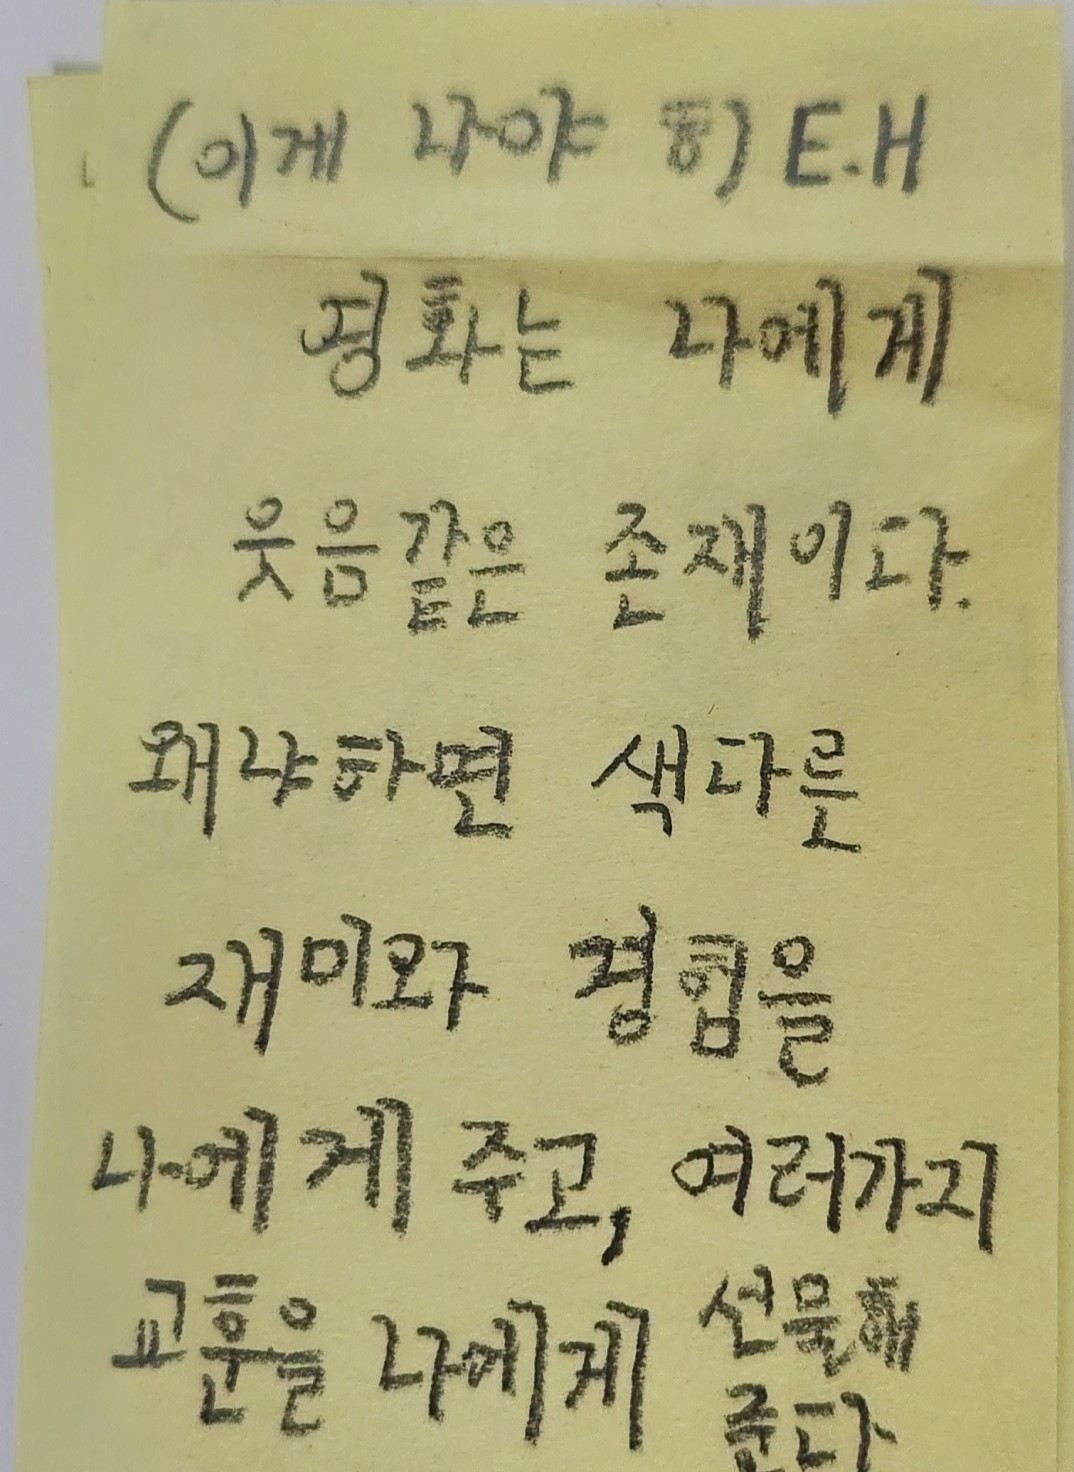 (이게 나야 ㅎ) E.H
영화는 나에게
웃음같은 존재이다.
왜냐하면 색다른
재미와 경험을
나에게 주고, 여러가지
교훈을 나에게 선물해
준다